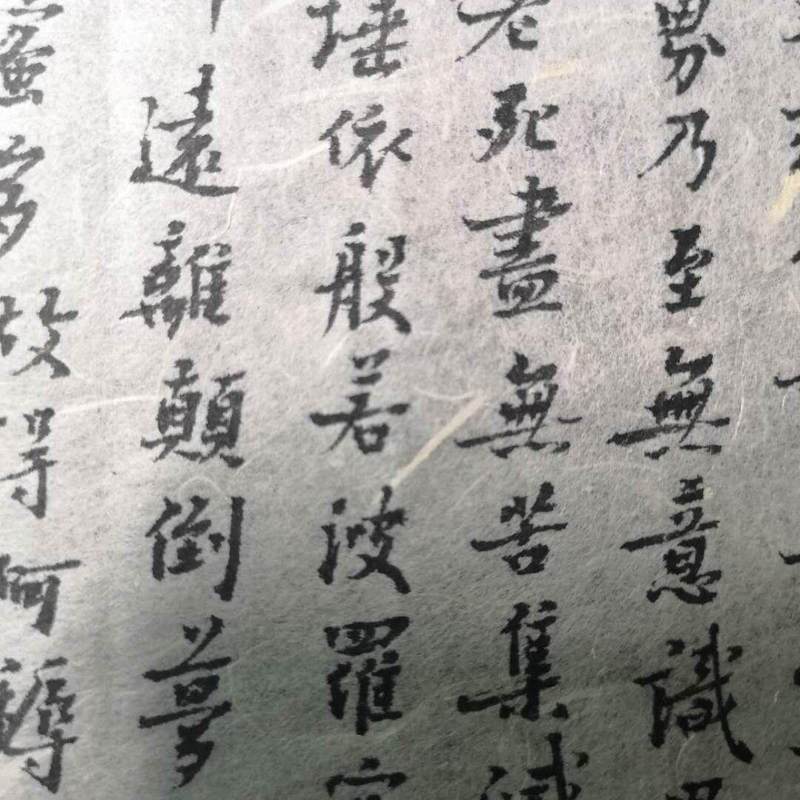 界乃至無意識
老死盡無苦集滅
埵依般若波羅
遠離顛倒夢
蜜多故得阿耨